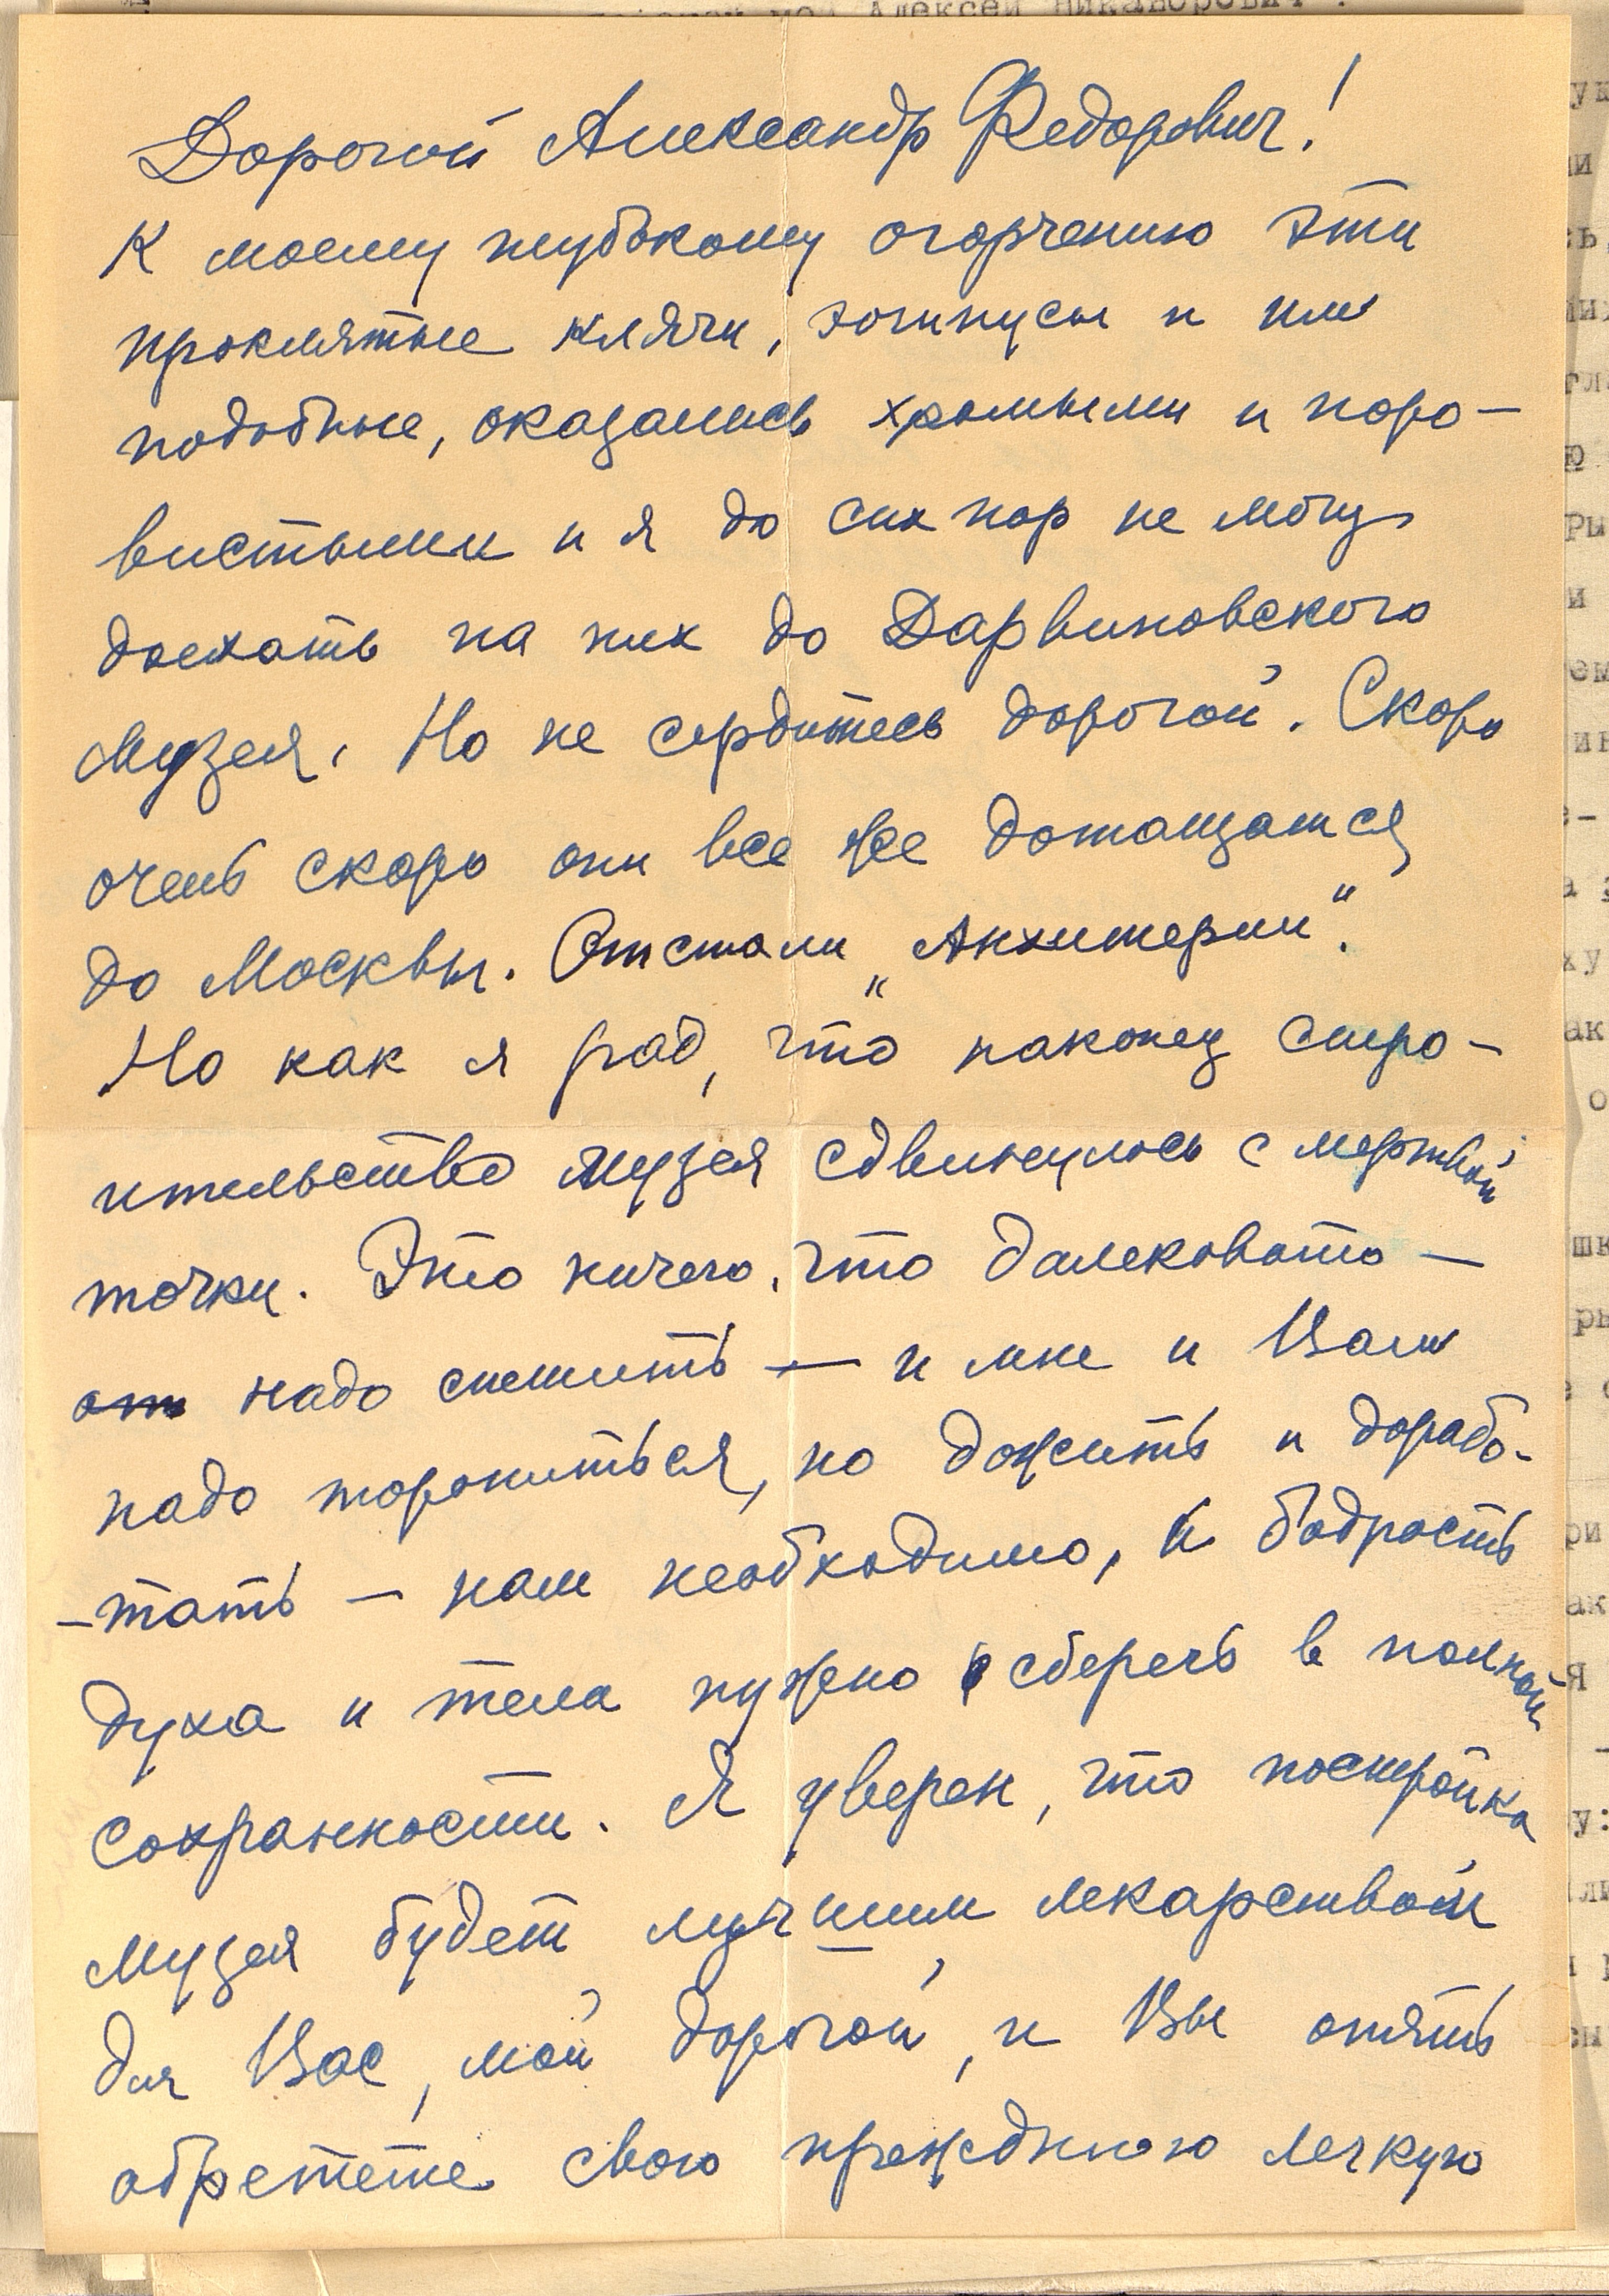 Дорогой Александр Федорович!
К моему глубокому огорчению эти
проклятые клячи, эогиппусы и им
подобные, оказались хромыми и норо-
вистыми и я до сих пор не могу
доехать на них до Дарвиновского
Музея. Но не сердитесь дорогой. Скоро
очень скоро они все же дотащатся
до Москвы. Отстали „Анхитерии".
Но как я рад, что наконец стро-
ительство музея сдвинулось с мертвой
точки. Это ничего, что далековато —
надо спешить — и мне и Вам
надо торопиться, но дожить и дорабо-
-тать — нам необходимо, и бодрость
духа и тела нужно сберечь в полной
сохранности. Я уверен, что постройка
музея будет лучшим лекарством
для Вас, мой дорогой, и Вы опять
обретете свою прежднюю легкую
Алексей Никанорович